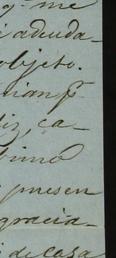 q. me
adeuda-
objeto.
iz, ca-
timo
presen
gracia-
de casa